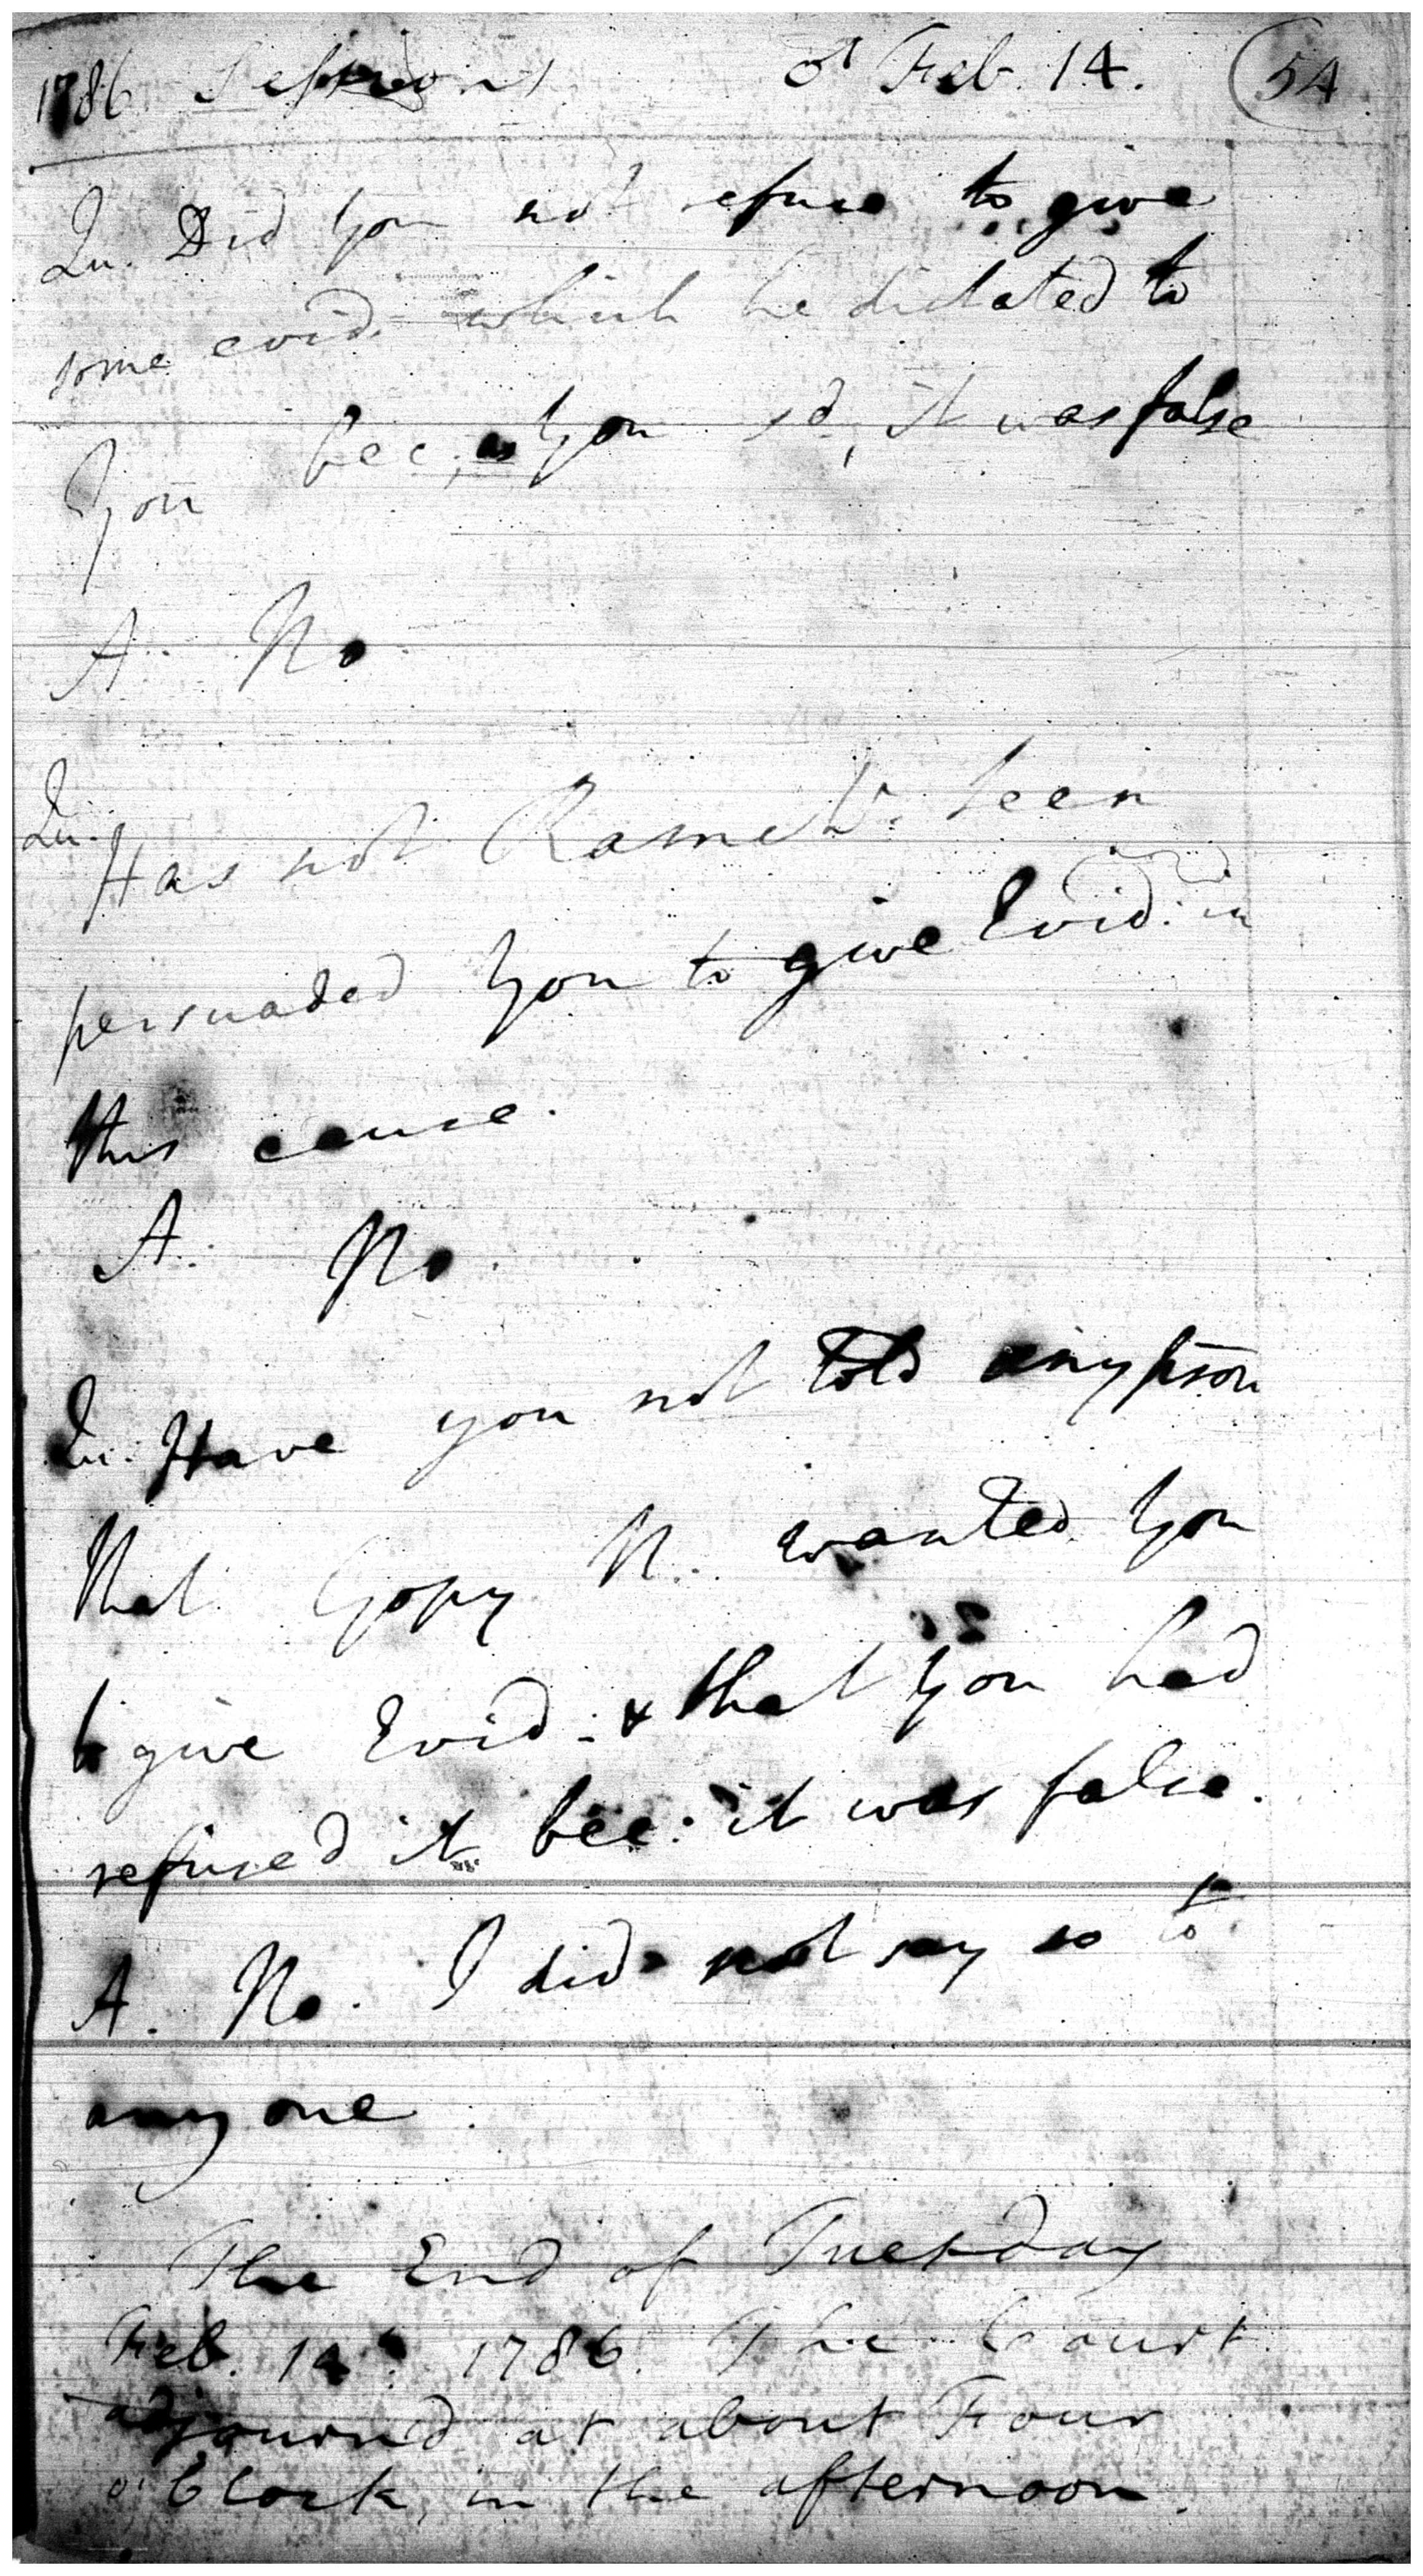 1786 Sessions ♂ Feb. 14. (54
Qu. Did you not refuse to give
some evid. which he dictated to
you bec: you sd, it was false
A. No.
Qu. Has not Ram been
persuaded you to give Evid: in
this cause.
A. No.
Qu. Have you not told any pson
that Gopy N. wanted you
to give Evid: & that you had
refused it bec: it was false.
A. No. I did not say so to
any one.
The End of Tuesday
Feb. 14. 1786. The Court
adjournd at about Four
o'Clock in the afternoon.